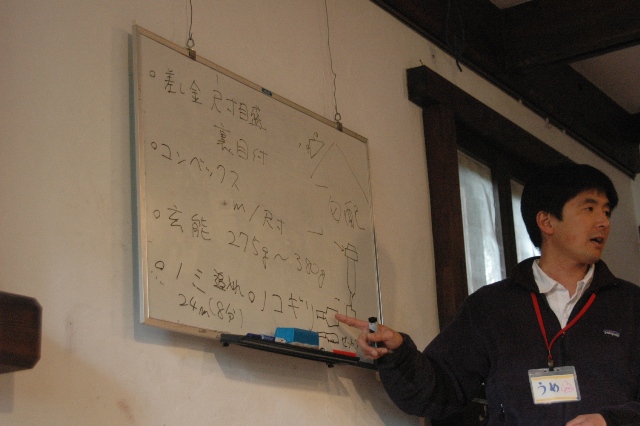 ○差し金 尺寸目盛
裏目付
○コンベックス
m/尺寸
勾配
○玄能 275g〜380g
ノミ 追入れ ○ノコギリ
24m(8分)
うめ
patagonia